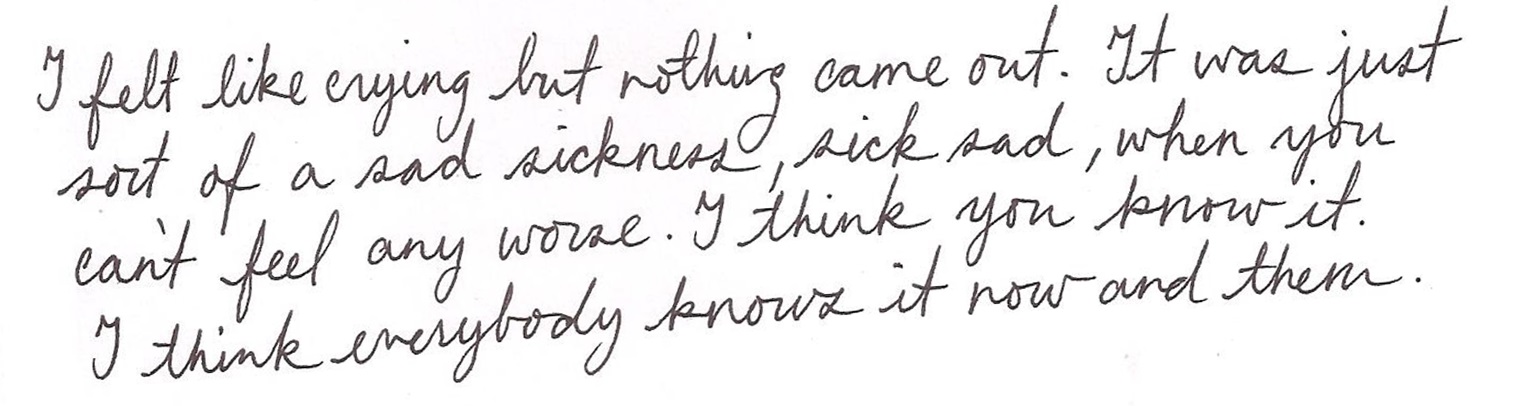 I felt like crying but nothing came out. It was just
sort of a sad sickness, sick sad, when you
can't feel any worse. I think you know it.
I think everybody knows it now and then.